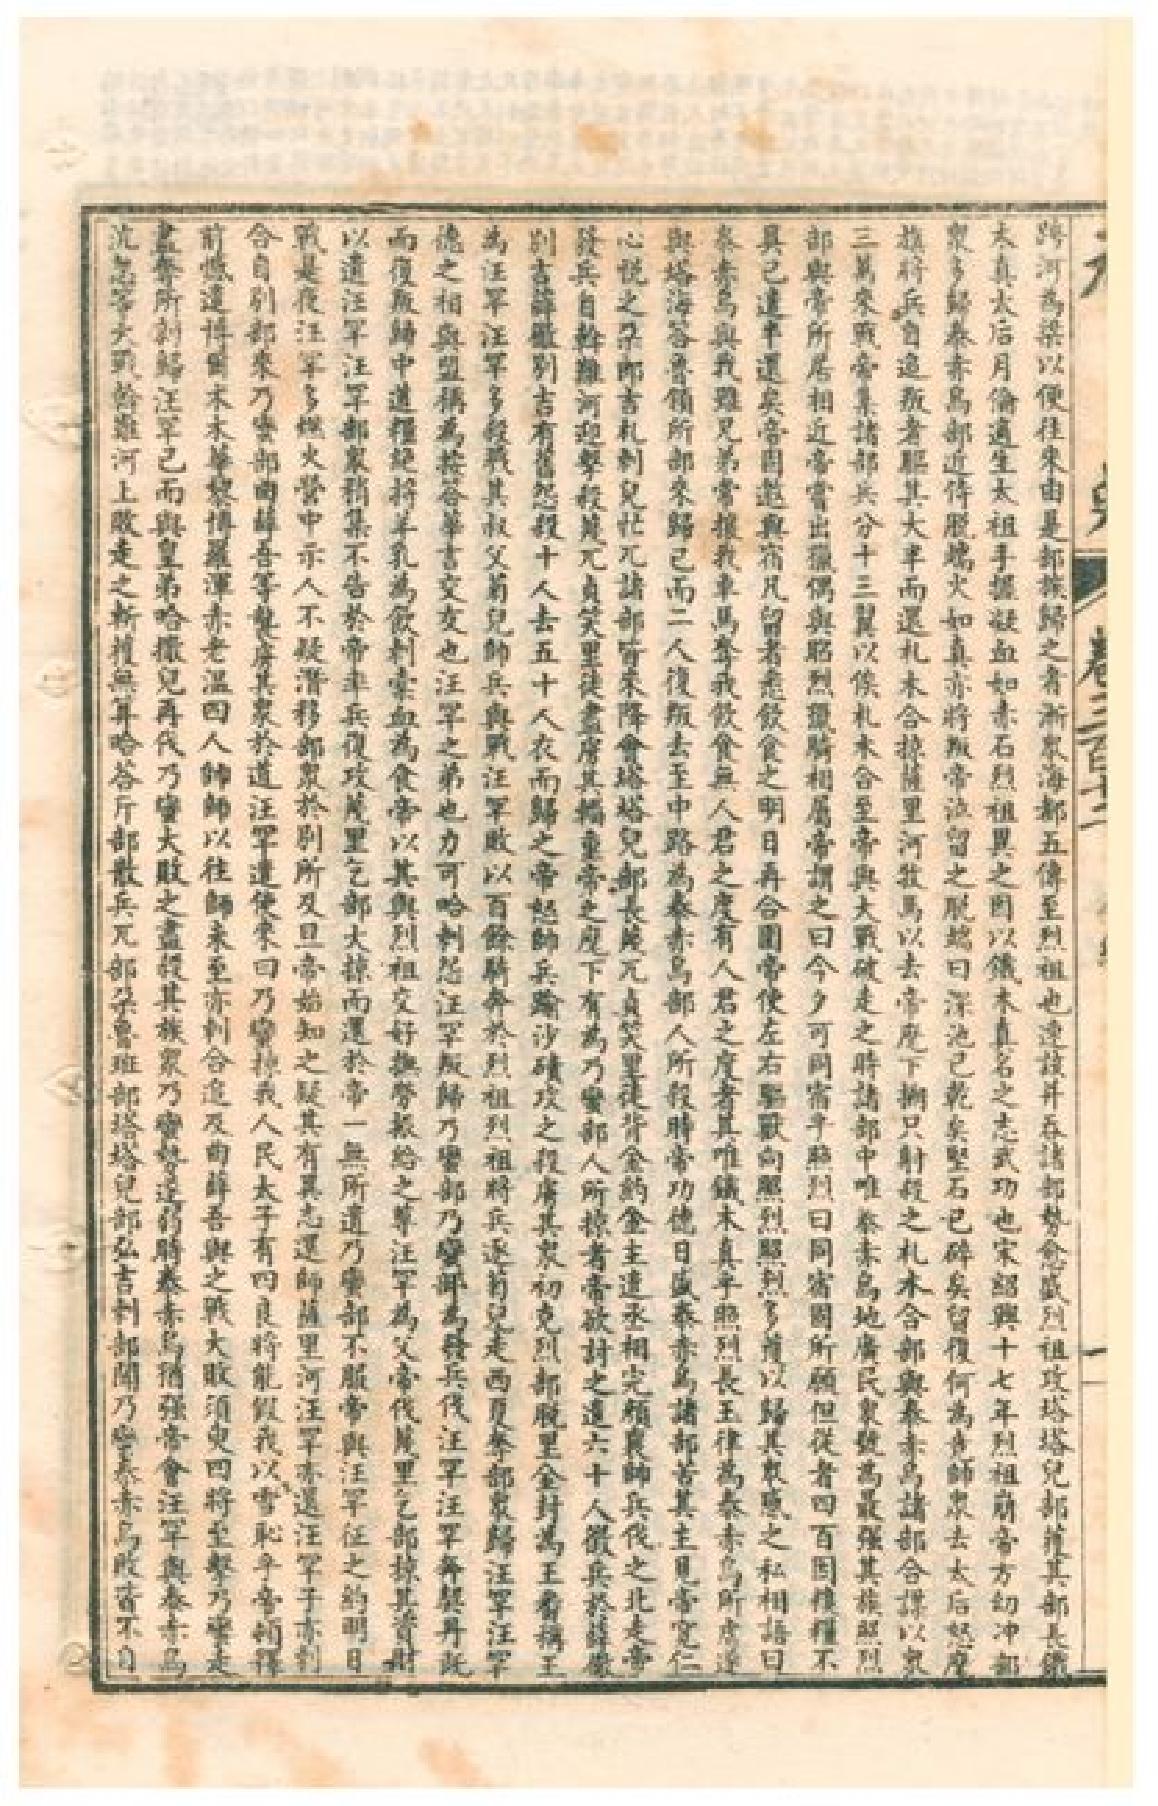 跨河為梁以便往來由是部族歸之者漸衆海都五傳至烈祖也速該并吞諸部勢愈盛烈祖攻塔塔兒部獲其部長鐵
木真太后月倫適生太祖手握凝血如赤石烈祖異之因以鐵木真名之志武功也宋紹興十七年烈祖崩帝方幼沖部
衆多歸泰赤烏部近侍脫端火如真亦將叛帝泣留之脫端曰深池已乾矣堅石已碎矣留復何為竟師衆去太后怒麾
旗將兵自追叛者驅其大半而還札木合掠薩里河牧馬以去帝麾下搠只射殺之札木合部與泰赤烏諸部合謀以衆
三萬來戰帝集諸部兵分十三翼以俟札木合至帝與大戰破走之時諸部中唯泰赤烏地廣民衆號為最强其族照烈
部與帝所居相近帝嘗出獵偶與照烈獵騎相屬帝謂之曰今夕可同宿乎照烈曰同宿固所願但從者四百因糗糧不
具已遣半還矣帝固邀與宿凡留者悉飲食之明日再合圍帝使左右驅獸向照烈照烈多獲以歸其衆感之私相語曰
泰赤烏與我雖兄弟常攘我車馬奪我飲食無人君之度有人君之度者其唯鐵木真乎照烈長玉律為泰赤烏所虐遂
與塔海答魯領所部來歸已而二人復叛去至中路為泰赤烏部人所殺時帝功德日盛泰赤烏諸部苦其主見帝寬仁
心悅之朵郎吉札剌兒忙兀諸部皆來降會塔塔兒部長蔑兀真笑里徒背金約金主遣丞相完顏襄帥兵伐之北走帝
發兵自幹難河迎擊殺蔑兀真笑里徒盡虜其輜重帝之麾下有為乃蠻部人所掠者帝欲討之遣六十人徵兵於薛徹
別吉薛徹別吉有舊怨殺十人去五十人衣而歸之帝怒帥兵踰沙磧攻之殺虜其衆初克烈部脫里金封為王番稱王
為汪罕汪罕多殺戮其叔父菊兒帥兵與戰汪罕敗以百餘騎奔於烈祖烈祖將兵逐菊兒走西夏奪部衆歸汪罕汪罕
德之相與盟稱為按答華言交友也汪罕之弟也力可哈剌怨汪罕叛歸乃蠻部乃蠻部為發兵伐汪罕汪罕奔契丹既
而復叛歸中道糧絕捋羊乳為飲刺橐血為食帝以其與烈祖交好撫勞振給之尊汪罕為父帝伐蔑里乞部掠其資財
以遺汪罕汪罕部衆稍集不告於帝率兵復攻蔑里乞部大掠而還於帝一無所遺乃蠻部不服帝與汪罕征之約明日
戰是夜汪罕多燃火營中示人不疑潛移部衆於別所及旦帝始知之疑其有異志還師薩里河汪罕亦還汪罕子亦剌
合自別部來乃蠻部曲薛吾等襲虜其衆於道汪罕遣使來曰乃蠻掠我人民太子有四良將能假我以雪恥乎帝頓釋
前憾遣博爾朮木華黎博羅渾赤老溫四人帥師以往師未至亦剌合追及曲薛吾與之戰大敗須臾四將至擊乃蠻走
盡奪所剽歸汪罕已而與皇弟哈撒兒再伐乃蠻大敗之盡殺其族衆乃蠻勢遂弱時泰赤烏猶强帝會汪罕與泰赤烏
沆忽等大戰幹難河上敗走之斬獲無算哈荅斤部散兵兀部朵魯班部塔塔兒部弘吉剌部聞乃蠻泰赤烏敗皆不自